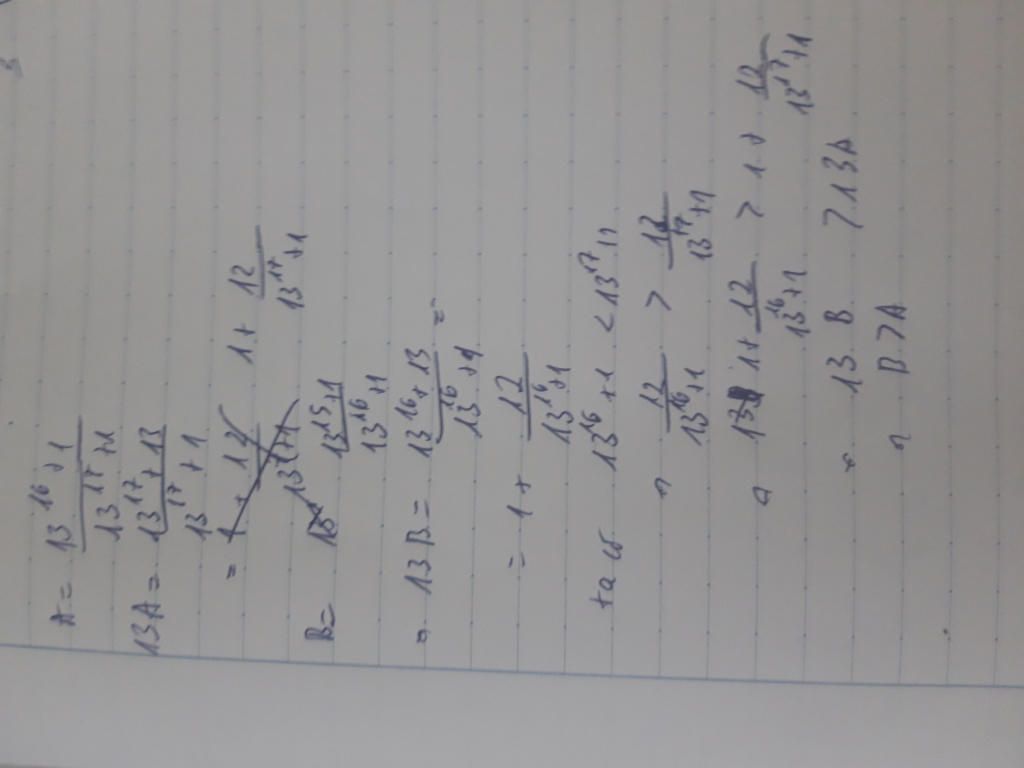 A = \frac{13^{16}+1}{13^{17}+1}
13A = \frac{13^{17}+13}{13^{17}+1}
= 1 + \frac{12}{13^{17}+1}
B = \frac{13^{15}+1}{13^{16}+1}
= 13B = \frac{13^{16}+13}{13^{16}+1} =
= 1 + \frac{12}{13^{16}+1}
ta có 13^{16}+1 < 13^{17}+1
\frac{12}{13^{16}+1} > \frac{12}{13^{17}+1}
1 + \frac{12}{13^{16}+1} > 1 + \frac{12}{13^{17}+1}
13B > 13A
B > A